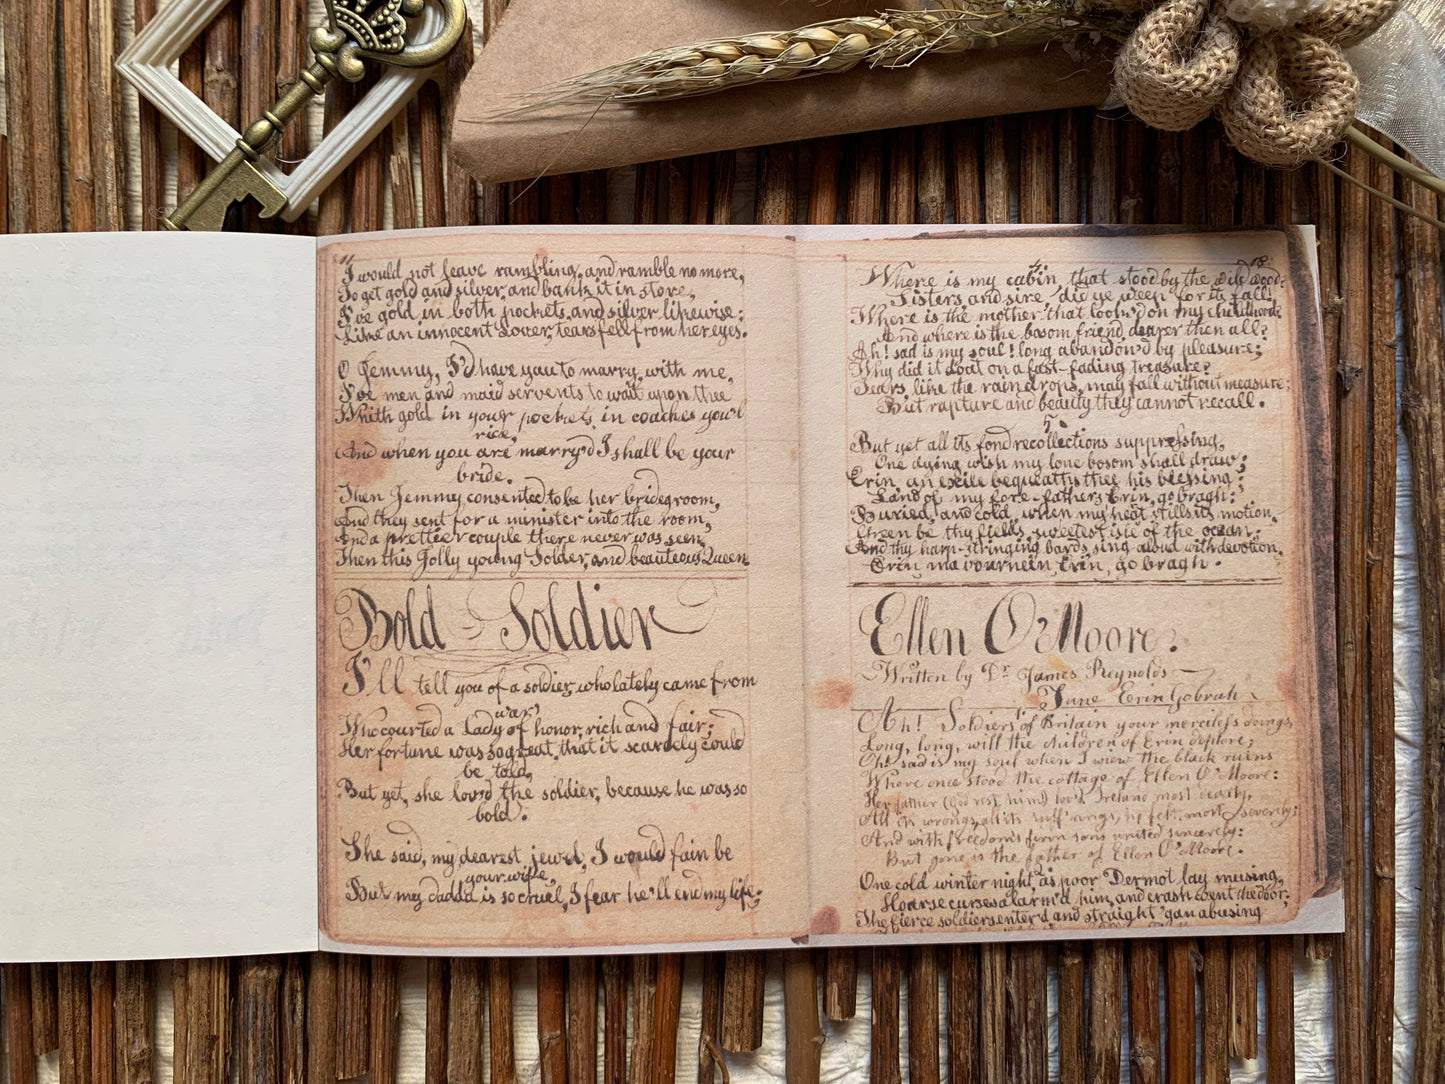 11
I would not leave rambling, and ramble no more,
To get gold and silver, and bank it in store,
I've gold in both pockets, and silver likewise:
Like an innocent Lover, tears fell from her eyes.
O Jemmy, I'd have you to marry, with me,
I've men and maid servents to wait upon thee
Whith gold in your pockets, in coaches you'l
ride,
And when you are marry'd I shall be your
bride.
Then Jemmy consented to be her bridegroom,
And they sent for a minister into the room,
And a prettier couple there never was seen,
Then this Jolly young Solder, and beauteous Queen
Bold Soldier
I'll tell you of a soldier, who lately came from
war,
Who courted a Lady of honor, rich and fair;
Her fortune was so great, that it scarcely could
be told,
But yet, she lov'd the soldier, because he was so
bold.
She said, my dearest jewel, I would fain be
your wife,
But my dadda is so cruel, I fear he'll end my life;
12
4
Where is my cabin, that stood by the wild wood?
Sisters, and sire, did ye weep for its fall!
Where is the mother that look'd on my childhood;
And where is the bosom friend, dearer then all?
Ah! sad is my soul! long abandon'd by pleasure;
Why did it doat on a fast-fading treasure?
Tears, like the rain drops, may fall without measure;
But rapture and beauty they cannot recall.
5
But yet all its fond recollections suppressing,
One dying wish my lone bosom shall draw;
Erin, an exile bequeaths thee his blessing;
Land of my fore-fathers Erin, go bragh!
Buried, and cold, when my heart stills its motion,
Green be thy fields, sweetest isle of the ocean;
And thy harp-stringing bards, sing aloud with devotion,
Erin, ma vournein, Erin, go bragh.
Ellen O'Moore.
Written by Dr. James Reynolds
Tune Erin Gobrah
1
Ah! Soldiers of Britain your merciless doings
Long, long, will the children of Erin deplore;
Oh! sad is my soul when I view the black ruins
Where once stood the cottage of Ellen O'Moore:
Her father (God rest him) lov'd Ireland most dearly,
All its wrongs, all its suff'rings, he felt most severely;
And with freedom's firm sons united sincerely:
But gone is the father of Ellen O'Moore.
One cold winter night, as poor Dermot lay musing,
Hoarse curses alarm'd him, and crash went the door;
The fierce soldiers enter'd and straight 'gan abusing